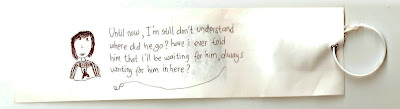 Until now, I'm still don't understand
where did he go? have i ever told
him that i'll be waiting for him, always
waiting for him in here?